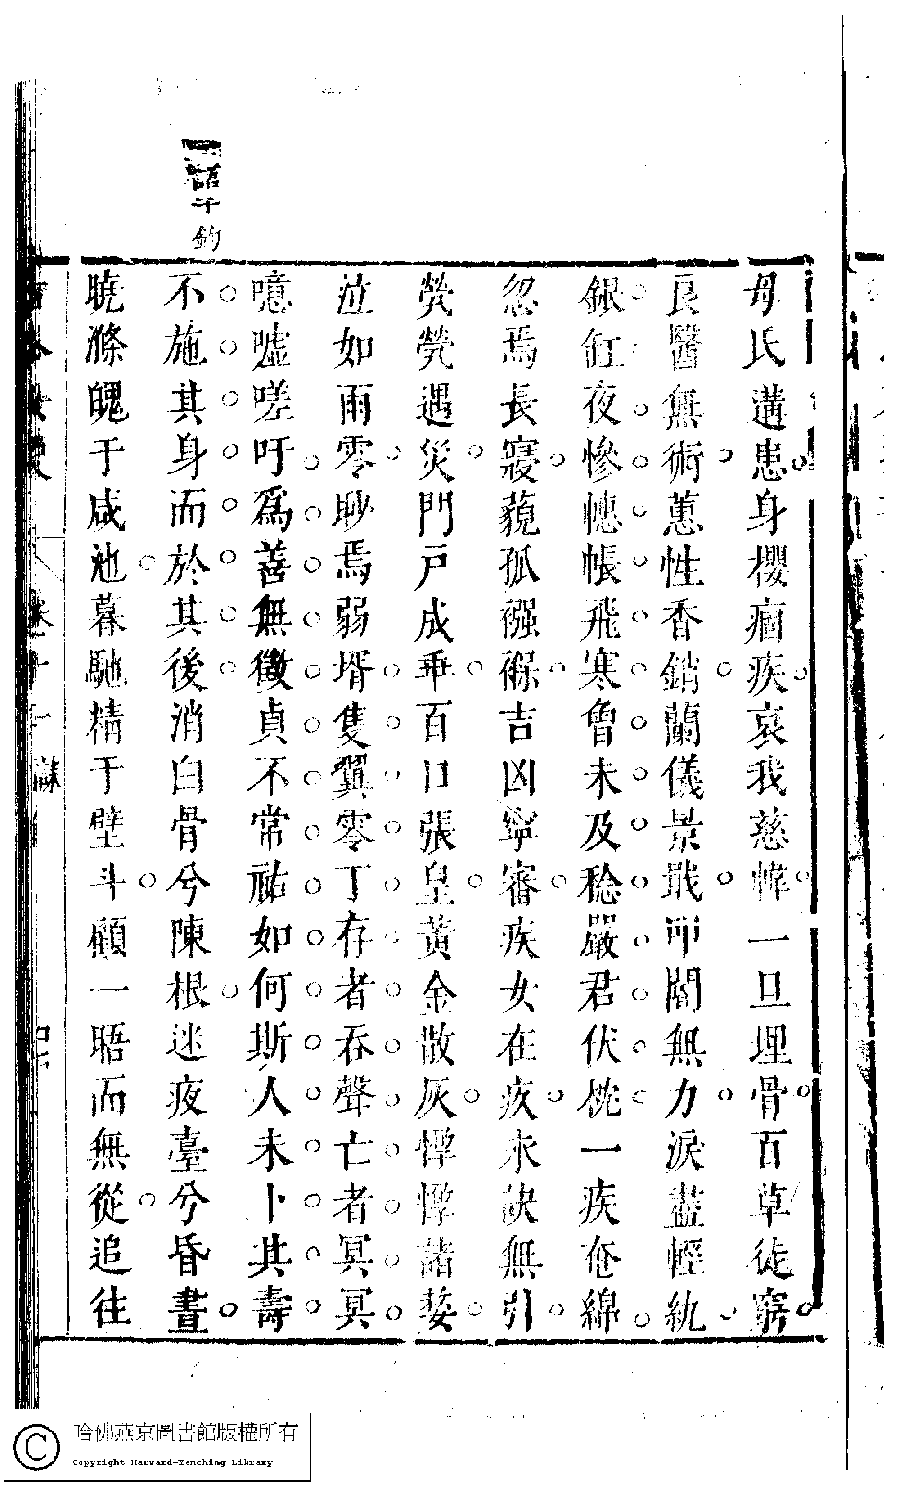 母氏遘患身櫻痼疾哀我慈幃一旦埋骨百草徒窮
良醫無術蕙性香銷蘭儀景戢叩閽無力淚盡輕紈
銀缸夜慘幰帳飛寒魯未及稔嚴君伏枕一疾奄綿
忽焉長寢藐孤襁褓吉凶寧審疾女在疚永訣無引
煢煢遇災門戶成乖百口張皇黃金散灰惸惸諸嫠
泣如雨零眇焉弱壻隻翼零丁存者吞聲亡者冥冥
噫嘘嗟吁爲善無徵貞不常祐如何斯人未卜其壽
不施其身而於其後消白骨兮陳根迷夜臺兮昏晝
曉滌魄于咸池暮馳精于壁斗顧一晤而無從追往
語千鈞
哈佛燕京圖書館版權所有
Copyright Harvard-Yenching Library